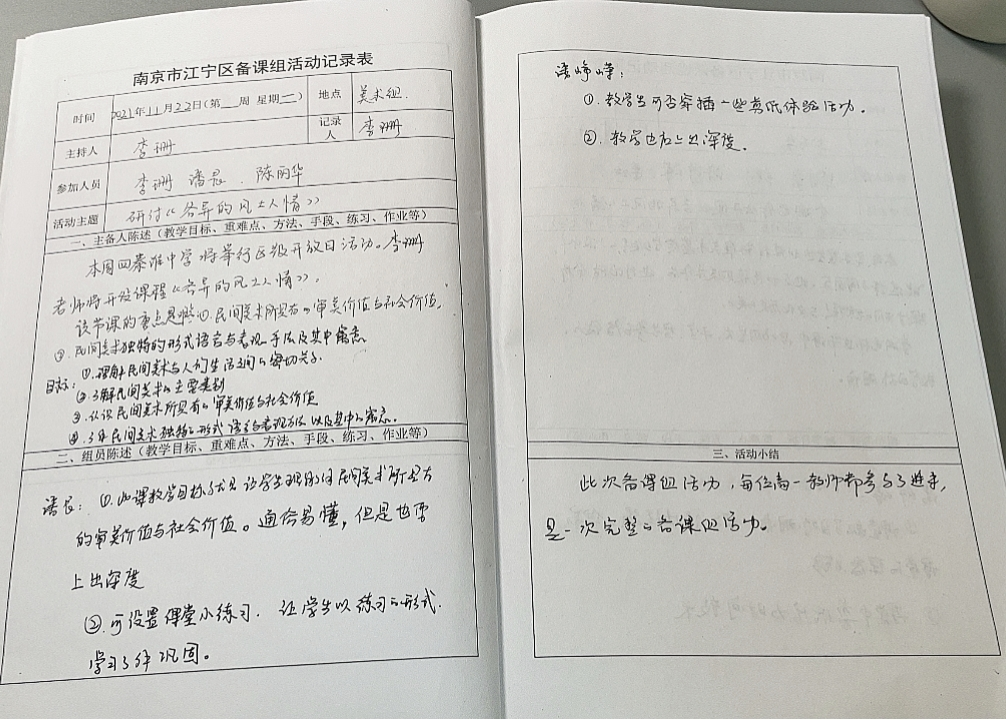 南京市江宁区备课组活动记录表
时间 2021年11月22日(第 周 星期一) 地点 美术组
主持人 李珊 记录人 李珊
参加人员 李珊 潘晨 陈丽华
活动主题 研讨《各异的风土人情》
一、主备人陈述(教学目标、重难点、方法、手段、练习、作业等)
本周四秦淮中学将举行区级开放日活动。李珊
老师将开设课程《各异的风土人情》。
该节课的重点是 ①.民间美术所具有的审美价值与社会价值。
②.民间美术独特的形式语言与表现手法及其中寓意
目标:①.理解民间美术与人们生活之间的密切关系
②.了解民间美术的主要类别
③.认识民间美术所具有的审美价值与社会价值
④.了解民间美术独特的形式语言与表现方法以及其中的寓意。
二、组员陈述(教学目标、重难点、方法、手段、练习、作业等)
潘晨:①.此课教学目标 让学生 民间美术所具有
的审美价值与社会价值。通俗易懂,但是也要
上出深度
②.可设置课堂小练习.让学生以练习的形式.
学习了解巩固。
①.教学生可否穿插一些剪纸体验活动。
②.教学也应上出深度。
三、活动小结
此次备课组活动,每位 教师都参与了进来,
是一次完整的备课组活动。